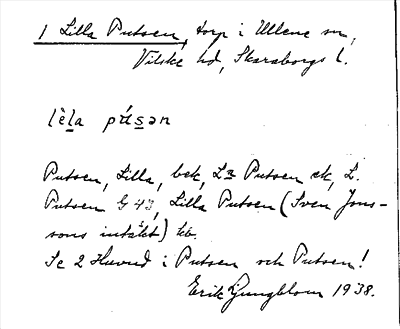 1 Lilla Putsen, torp i Ullene sn,
Vilske hd, Skaraborgs l.
lèla pútsən
Putsen, Lilla, bek, La Putsen ek, L.
Putsen G 43, Lilla Putsen (Sven Jons-
sons intäkt) kb.
Se 2 Huvud i Putsen och Putsen!
Erik Ljungblom 1938.